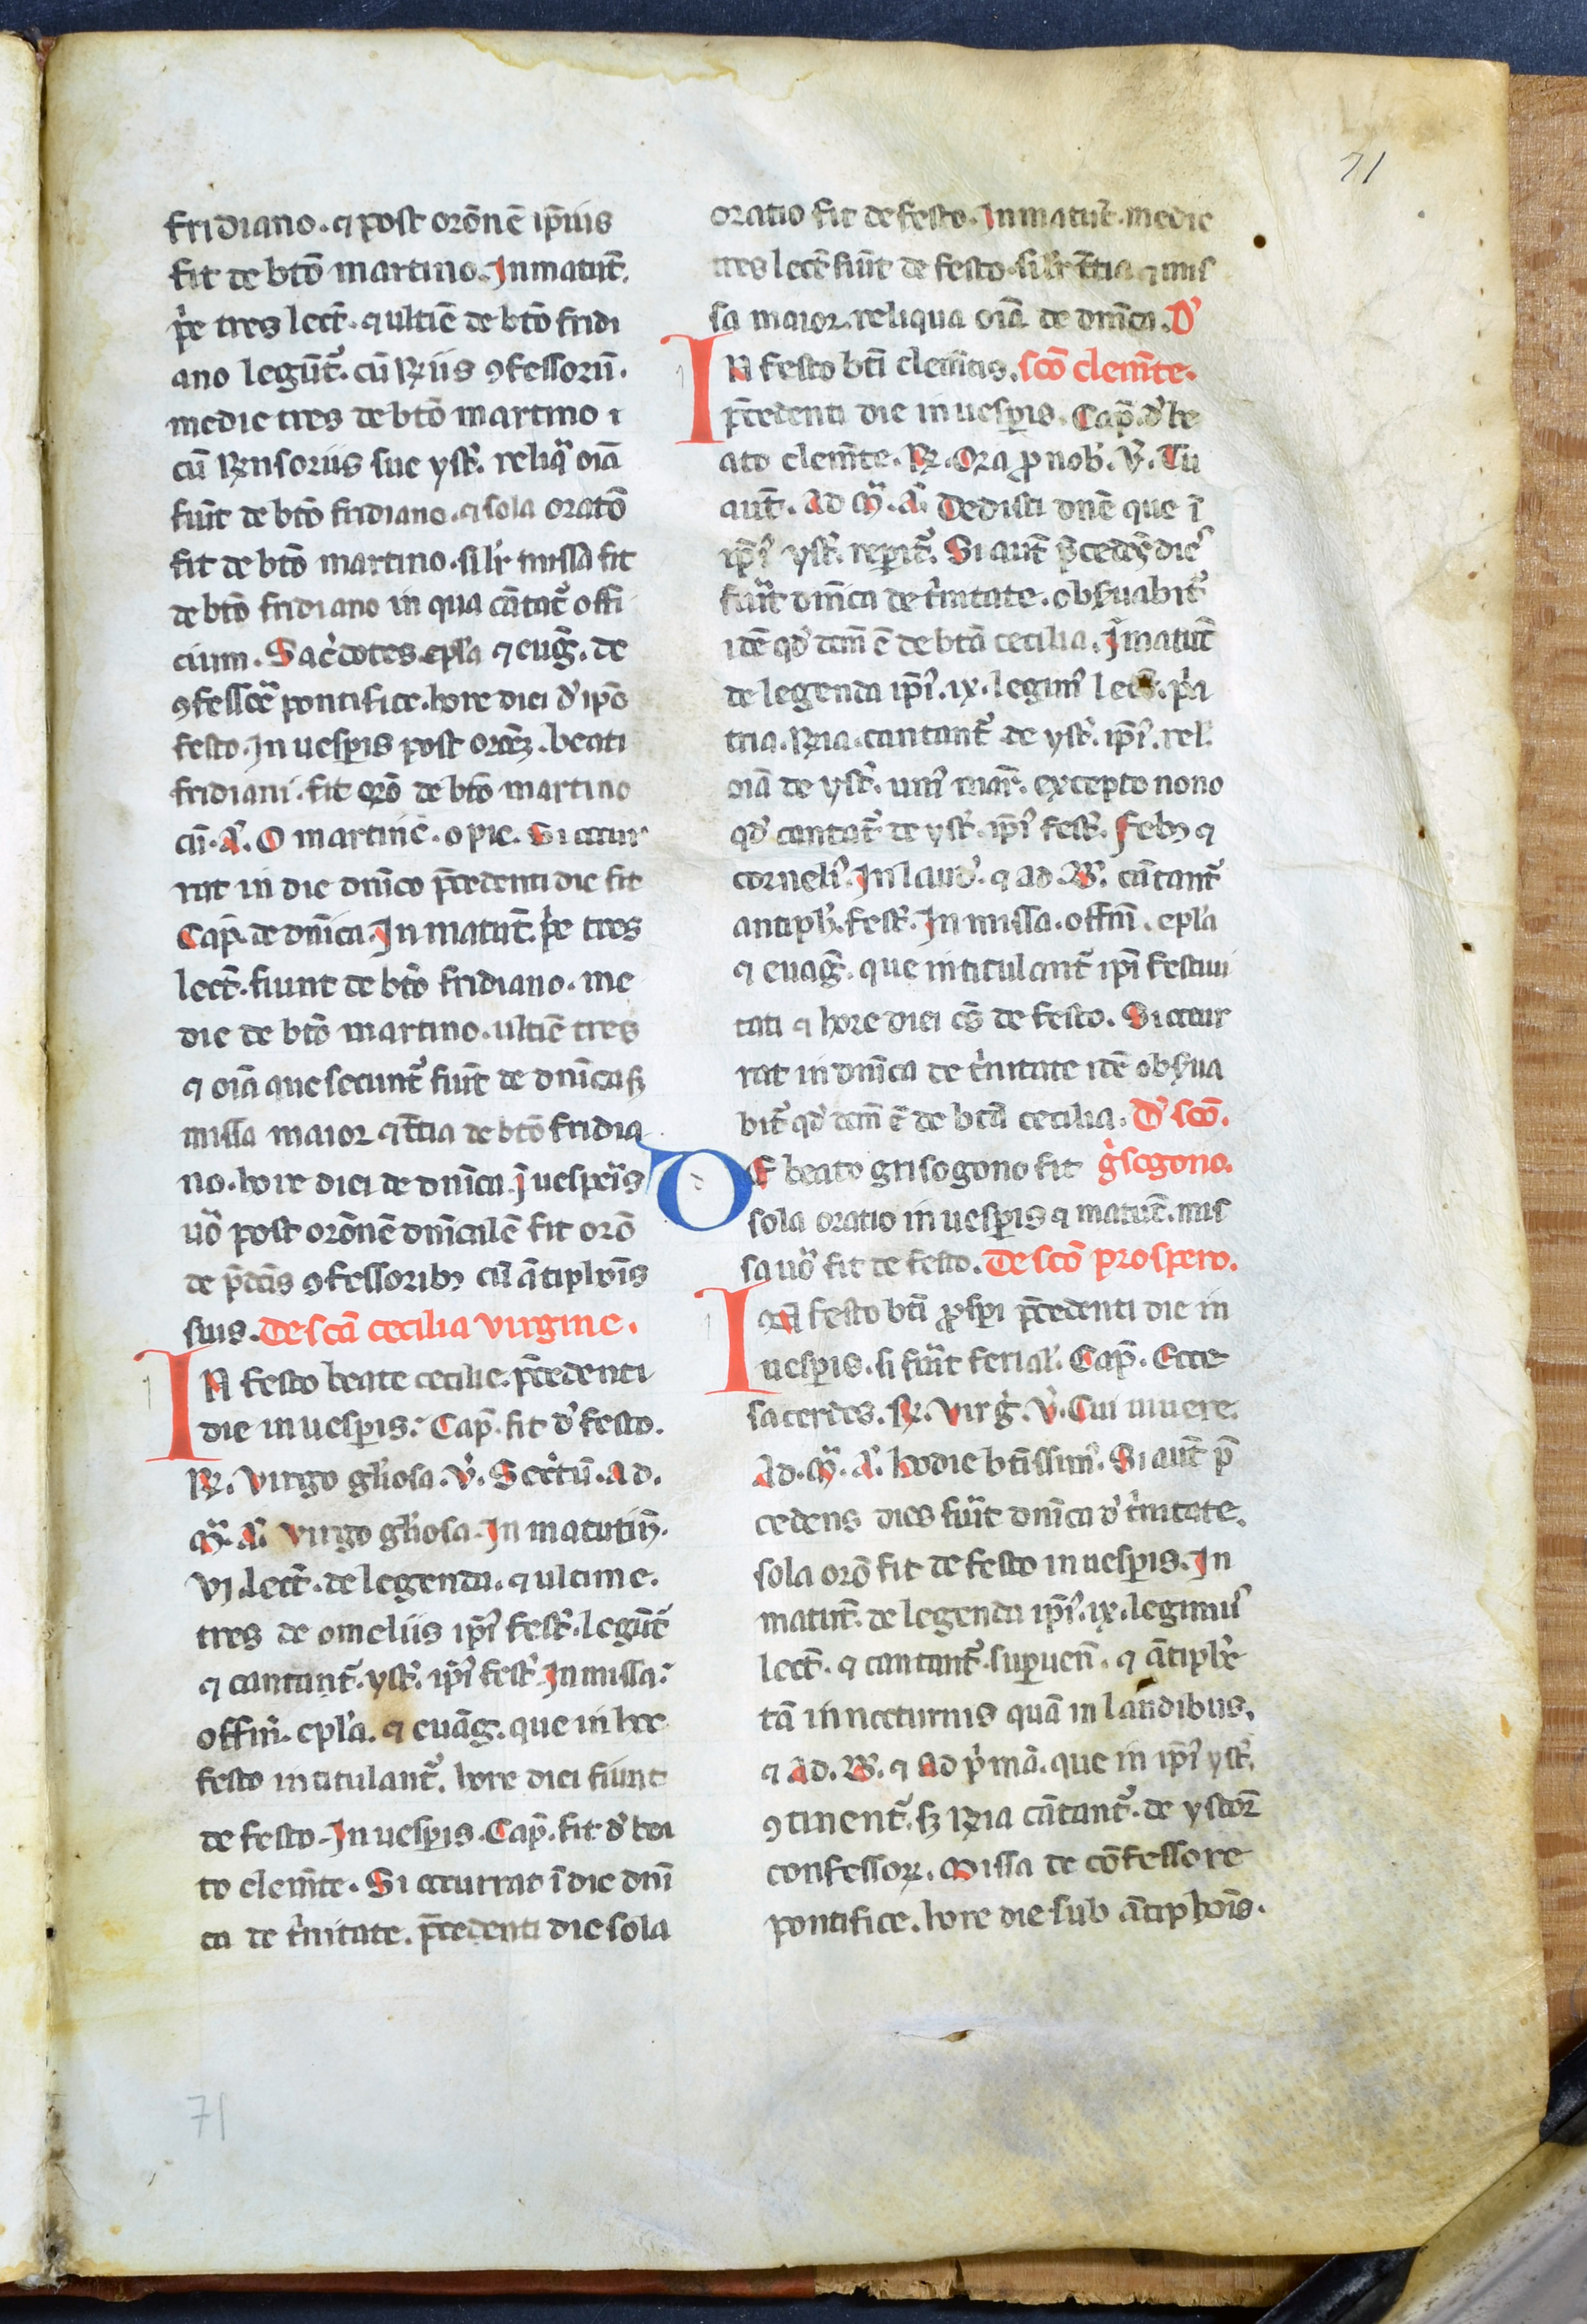 71
fridiano. ⁊ post orōnē ip̄ius
fit de btō martino. In matut̄.
p̄e tres lect̄. ⁊ ultiē de btō fridi
ano legūt̄. cū ꝶiis ꝯfessorū.
medie tres de btō martino ⁊
cū ꝶnsoriis sue yst̄. reliq̄ oīa
fiūt de btō fridiano. ⁊ sola oratō
fit de btō martino. silr̄ missa fit
de btō fridiano in qua cātat̄ offi
cium. Sac̄dotes epl̄a ⁊ euḡ. de
ꝯfessoē pontifice. hore diei d' ip̄o
festo. In uesp̄is post orōꝫ. beati
fridiani. fit orō de btō martino
cū. A̅. O martine. o pie. Si occur
rat in die dn̄ico p̄cedenti die fit
Cap̄. de dn̄ica. In matut̄. p̄e tres
lect̄. fiunt de btō fridiano. me
die de btō martino. ultiē tres
⁊ oīa que secunt̄ fiūt de dn̄ica sꝫ
missa maior ⁊ t̄tia de btō fridia
no. hore diei de dn̄ica. ī uesp̄is
uo̅ post orōnē dn̄icalē fit orō
de p̄dc̄is ꝯfessoribꝫ cū ātiphōis
suis. De sc̄a cecilia virgine.
IN festo beate cecilie. p̄cedenti
die in uesp̄is. Cap̄. fit d' festo.
ꝶ. Virgo gl̄iosa. v̄. Sect̄ū. Ad.
M̄. A̅. Virgo gl̄iosa. In matutīꝫ.
vj. lect̄. de legenda. ⁊ ultime.
tres de omeliis ip̄i' fest̄. legūt̄
⁊ cantant̄. yst̄. ip̄i' fest̄. In missa.
offin̄. epl̄a. ⁊ euāg. que in hoc
festo intitulant̄. hore diei fiunt
de festo. In uesp̄is. Cap̄. fit d' bea
to clem̄te. Si occurrat ī die dn̄i
ca de t̄nitate. p̄cedenti die sola
71
oratio fit de festo. In matut̄. medie
tres lect̄ fiūt de festo. silr̄ t̄tia ⁊ mis
sa maior. reliqua oīa de dn̄ica. D'
sc̄o clem̄te.
IN festo bt̄i clem̄tis.
p̄cedenti die in uesp̄is. Cap̄. d' be
ato clem̄te. ꝶ. Ora ꝓ nob̄. v̄. Tu
aut̄. Ad M̄. A̅. Dedisti dn̄e que ī
ip̄i' yst̄. rep̄it̄. Si aut̄ p̄cedēs die'
fūit dn̄ica de t̄nitate. obs̄uabit̄
idē qd' dc̄m ē de btā cecilia. ī matut̄
de legenda ip̄i'. ix. legim' lect̄. p̄a
tria. ꝶia. cantant̄ de yst̄. ip̄i'. rel'.
oīa de yst̄. uni' mar̄. excepto nono
qd' cantat̄ de yst̄. ip̄i' fest̄. Febꝫ ⁊
corneli'. In laud'. ⁊ ad. B̄. cātant̄
antiph̄. fest̄. In missa. offin̄. epl̄a
⁊ euaḡ. que intitulant̄ ip̄i festiui
tati ⁊ hore diei eī de festo. Si occur
rat in dn̄ica de t̄nitate idē obs̄ua
bit̄ qd' dc̄m ē de btā cecilia. D' sc̄o.
g̊sogono.
DE beato grisogono fit
sola oratio in uesp̄is ⁊ matut̄. mis
sa uo̅ fit de festo. De sc̄o prospero.
IN festo bt̄i ꝓsp̄i p̄cedenti die in
uesp̄is. si fūit ferial'. Cap̄. Ecce
sacerdos. ꝶ. Virg̊. v̄. Cui uiuere.
Ad. M̄. A̅. hodie bt̄issim'. Si aut̄ p̄
cedens dies fūit dn̄ica d' t̄nitate.
sola orō fit de festo in uesp̄is. In
matut̄. de legenda ip̄i'. ix. legimu'
lect̄. ⁊ cantant̄. sup̄uen̄. ⁊ ātiph̄e
tā in nocturnis quā in laudibus.
⁊ Ad. B̄. ⁊ Ad p̄mā. que in ip̄i' yst̄.
ꝯtinent̄. sꝫ ꝶia cātant̄. de ystoꝝ
confessoꝝ. Missa de cōfessore
pontifice. hore die sub ātiphōis.